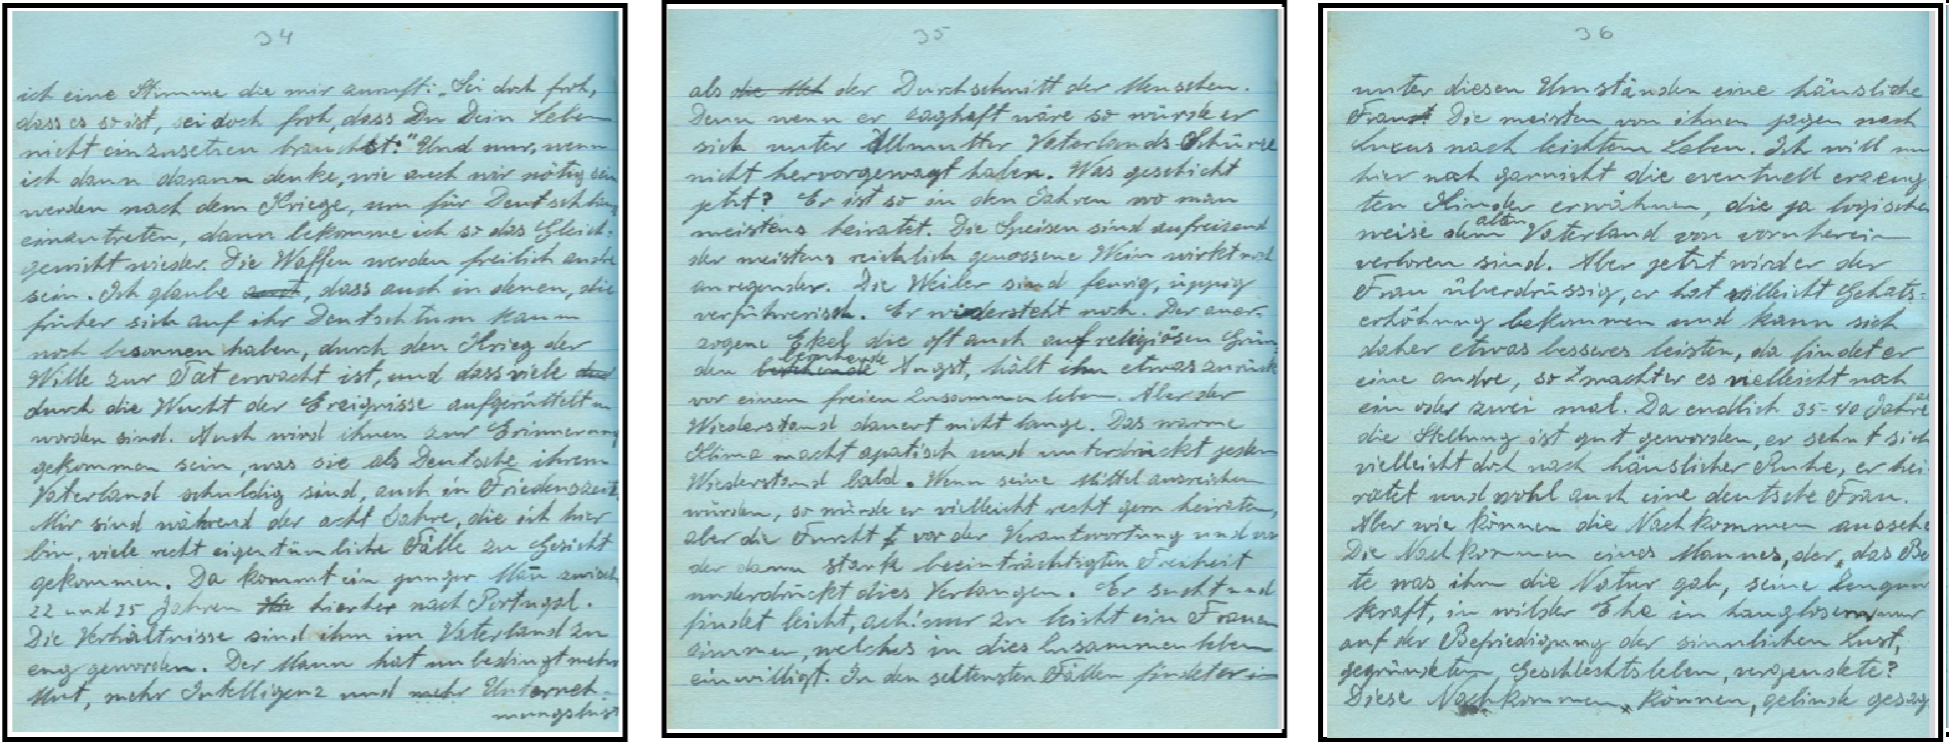 34
ich eine Stimme die mir zuruft: „Sei doch froh,
dass es so ist, sei doch froh, dass Du Dein Leben
nicht einzusetzen brauchst." Und nur, wenn
ich dann daran denke, wie auch wir nötig sein
werden nach dem Kriege, um für Deutschland
einzutreten, dann bekomme ich so das Gleich-
gewicht wieder. Die Waffen werden freilich andre
sein. Ich glaube auch, dass auch in denen, die
früher sich auf ihr Deutschtum kaum
noch besonnen haben, durch den Krieg der
Wille zur Tat erwacht ist, und dass viele
durch die Wucht der Ereignisse aufgerüttelt
worden sind. Auch wird ihnen zur Erinnerung
gekommen sein, was sie als Deutsche ihrem
Vaterland schuldig sind, auch in Friedenszeit.
Mir sind während der acht Jahre, die ich hier
bin, viele recht eigentümliche Fälle zu Gesicht
gekommen. Da kommt ein junger Man zwisch
22 und 25 Jahren hierher nach Portugal.
Die Verhältnisse sind ihm im Vaterland zu
eng geworden. Der Mann hat unbedingt mehr
Mut, mehr Intelligenz und mehr Unterneh-
mungslust
35
als die Meh der Durchschnitt der Menschen.
Denn wenn er zaghaft wäre so würde er
sich unter Allmutter Vaterlands Schürze
nicht hervorgewagt haben. Was geschieht
jetzt? Er ist so in den Jahren wo man
meistens heiratet. Die Speisen sind aufreizend
der meistens reichlich genossene Wein wirkt noch
anregender. Die Weiber sind feurig, üppig
verführerisch. Er widersteht noch. Der aner-
zogene Ekel die oft auch auf religiösen Grün
den beruhende Angst, hält ihn etwas zurück
vor einem freien Zusammenleben. Aber der
Wiederstand dauert nicht lange. Das warme
Klima macht apatisch und unterdrückt jeden
Wiederstand bald. Wenn seine Mittel ausreichen
würden, so würde er vielleicht recht gern heiraten,
aber die Furcht vor der Verantwortung und vor
der dann stark beeinträchtigten Freiheit
unterdrückt dies Verlangen. Er sucht und
findet leicht, ach! nur zu leicht ein Frauen
zimmer, welches in dies Zusammenleben
einwilligt. In den seltensten Fällen findet er in
36
unter diesen Umständen eine häusliche
Frau. Die meisten von ihnen jagen nach
Luxus nach leichtem Leben. Ich will nun
hier noch garnicht die eventuell erzeug
ten Kinder erwähnen, die ja logischer
weise dem alten Vaterland von vornherein
verloren sind. Aber jetzt wird er der
Frau überdrüssig, er hat villeicht Gehalts-
erhöhung bekommen und kann sich
daher etwas besseres leisten, da findet er
eine andre, so macht er es vielleicht noch
ein oder zwei mal. Da endlich 35-40 Jahre
die Stellung ist gut geworden, er sehnt sich
vielleicht doch nach häuslicher Ruhe, er hei
ratet und wohl auch eine deutsche Frau.
Aber wie können die Nachkommen aussehe
Die Nachkommen eines Mannes, der, das Be
te was ihm die Natur gab, seine Zeugun
kraft, in wilder Ehe in nur
auf der Befriedigung der sinnlichen Lust,
gegründeten Geschlechtsleben, vergeudete?
Diese Nachkommen, können, gelinde gesag